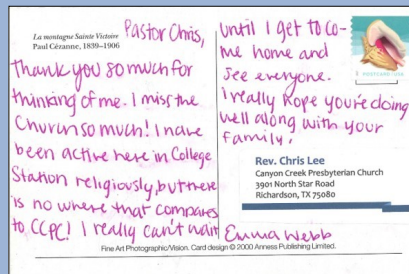 La montagne Sainte Victoire
Paul Cézanne, 1839–1906
Pastor Chris,
Thank you so much for
thinking of me. I miss the
Church so much! I have
been active here in College
Station religiously, but there
is no where that compares
to CCPC! I really can't wait
until I get to co-
me home and
see everyone.
I really hope you're doing
well along with your
family,
Emma Webb
POSTCARD/USA
Rev. Chris Lee
Canyon Creek Presbyterian Church
3901 North Star Road
Richardson, TX 75080
Fine Art Photographic/Vision. Card design © 2000 Anness Publishing Limited.